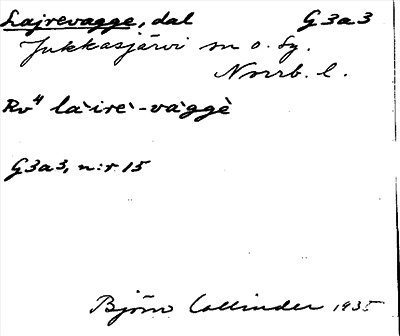 Lajrevagge, dal G3a3
Jukkasjärvi sn o. sg.
Norrb. l.
Rv⁴ la`ire`-va`ggè
G3a3, n:r 15
Björn Collinder 1935